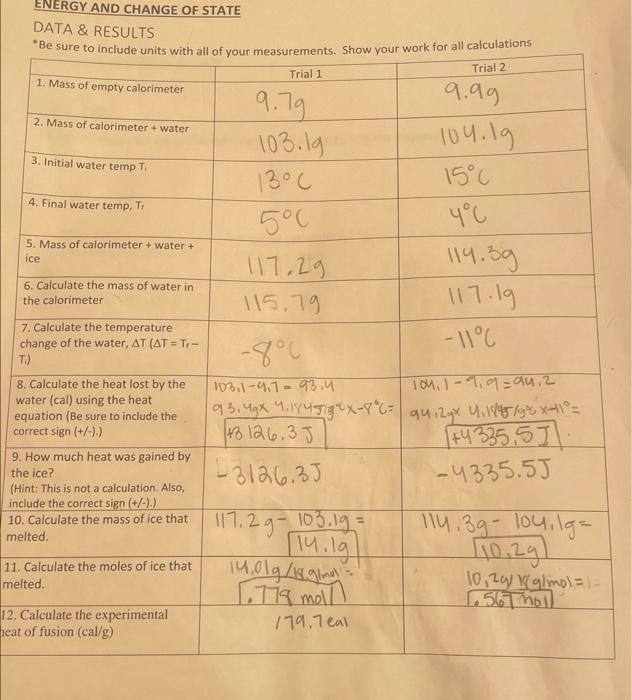 ENERGY AND CHANGE OF STATE
DATA & RESULTS
*Be sure to include units with all of your measurements. Show your work for all calculations
Trial 1
Trial 2
1. Mass of empty calorimeter
9.7g
9.9g
2. Mass of calorimeter + water
103.1g
104.1g
3. Initial water temp Ti
13°C
15°C
4. Final water temp, Tf
5°C
4°C
5. Mass of calorimeter + water +
ice
117.2g
114.3g
6. Calculate the mass of water in
the calorimeter
115.7g
117.1g
7. Calculate the temperature
change of the water, ΔT (ΔT = Tf –
Ti)
-8°C
-11°C
8. Calculate the heat lost by the
water (cal) using the heat
equation (Be sure to include the
correct sign (+/-).)
103.1-9.7= 93.4
93.4g x 4.184J/g°c x-8°C=
+3126.3J
104.1-9.9=94.2
94.2g x 4.184J/g°c x-11°=
+4335.5J
9. How much heat was gained by
the ice?
(Hint: This is not a calculation. Also,
include the correct sign (+/-).)
-3126.3J
-4335.5J
10. Calculate the mass of ice that
melted.
117.2g- 103.1g=
14.1g
114.3g- 104.1g=
10.2g
11. Calculate the moles of ice that
melted.
14.01g/18g/mol=
.778 mol
10.2g/18g/mol=
.567 mol
12. Calculate the experimental
heat of fusion (cal/g)
179.7cal